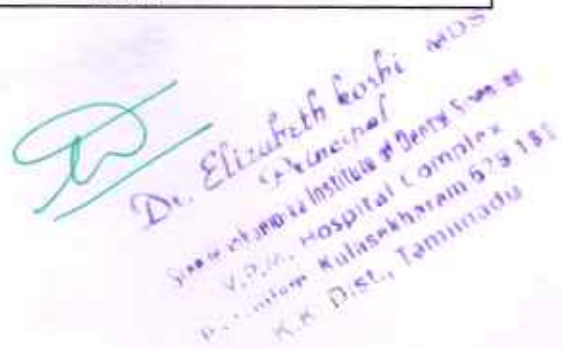 Dr. Elizabeth Koshi MDS
Principal
Institute of Dental Sciences
V.P.M. Hospital Complex
Kulasekharam 629 161
K.K. Dist., Tamilnadu